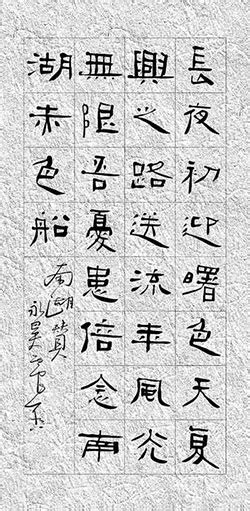 長夜初迎曙色天夏
興之路送流年風光
無限吾憂患倍念南
湖赤色船
南湖贊